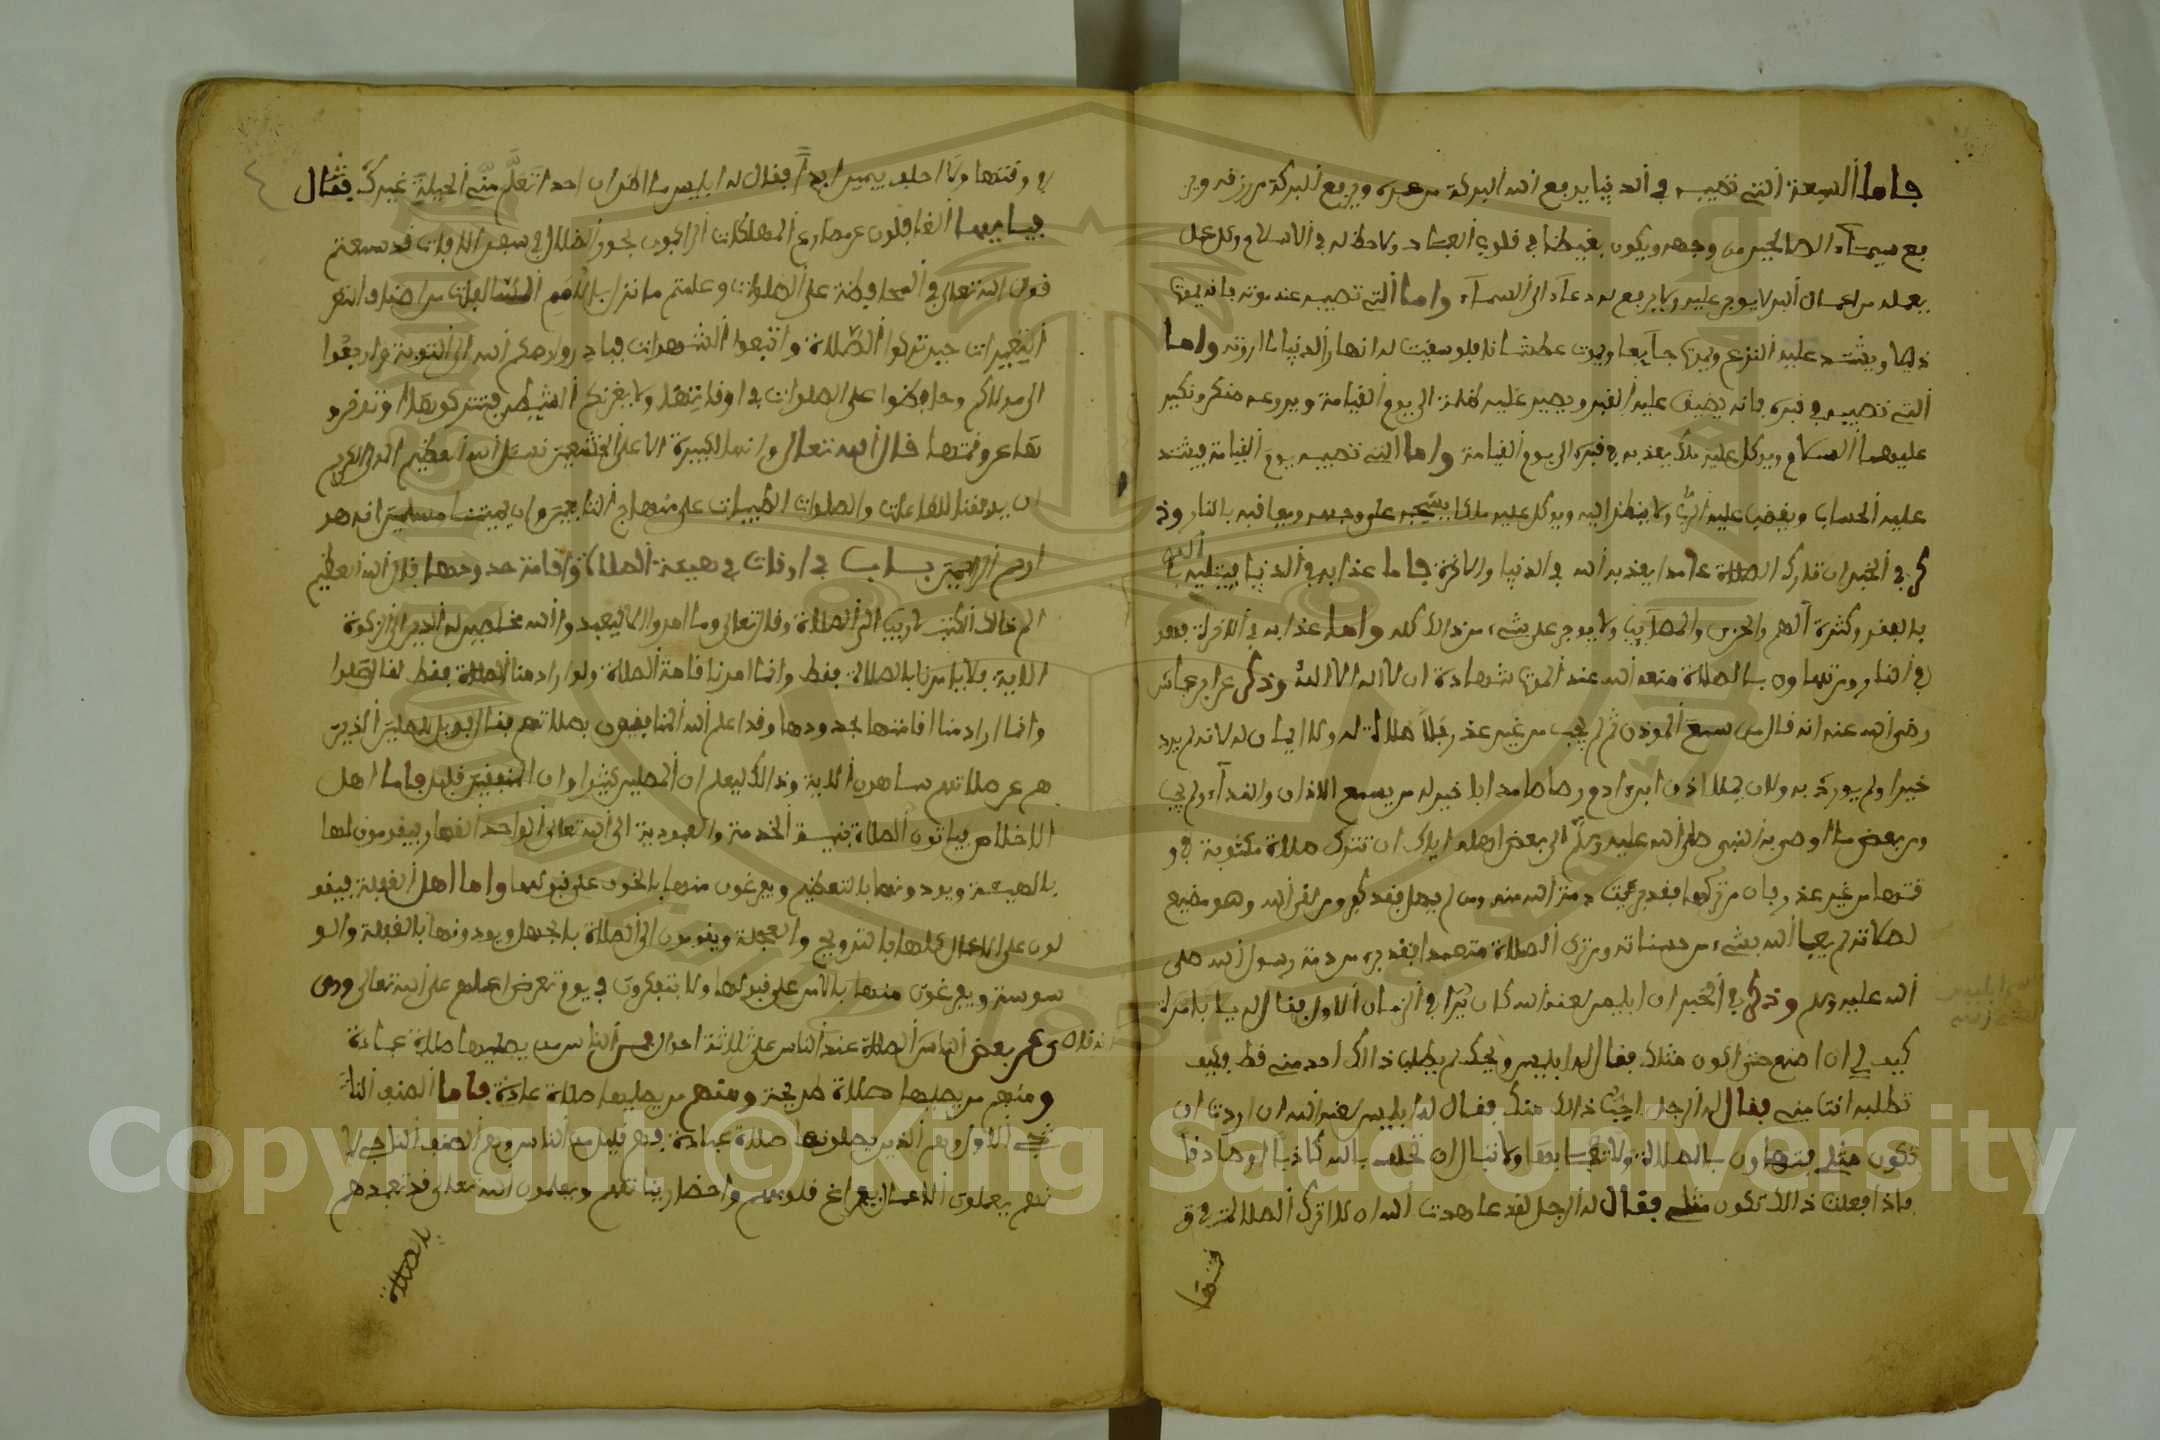 فاما السبعة التي تصيبه في الدنيا يرفع الله البركة من عمره ويرفع البركة من رزقه وير
فع سيماء الصالحين من وجهه ويكون بغيضا في قلوب العباد ولا حظ له في الاسلام وكل عمل
يعمله من اعمال البر لا يوجر عليه ولا يرفع له دعاء الى السماء واما التي تصيبه عند موته فانه يموت
ذليلا ويشتد عليه النزع ويموت جايعا ويموت عطشانا فلو سقيت له انهار الدنيا ما اروته واما
التي تصيبه في قبره فانه يضيق عليه القبر ويصير عليه ظلمة الى يوم القيامة ويروعه منكر ونكير
عليهما السلام ويوكل عليه ملك يعذبه في قبره الى يوم القيامة واما التي تصيبه يوم القيامة فيشتد
عليه الحساب ويغضب عليه الرب ولا ينظر اليه ويوكل عليه ملكا يسحبه على وجهه ويعاقبه بالنار وذ
كر في الخبر ان تارك الصلاة عامدا يعذبه الله في الدنيا والاخرة فاما عذابه في الدنيا يبتليه الله
بالفقر وكثرة الهم والحزن والمصايب ولا يوجر على شيء من ذالك كله واما عذابه في الاخرة فهو
في النار ومن تهاون بالصلاة منعه الله عند الموت شهادة ان لا اله الا الله وذكر عن ابن عباس
رضي الله عنه انه قال من سمع الموذن ثم لم يجب من غير عذر فلا صلاة له ولا ايمان له لانه لم يرد
خيرا ولم يورد به ولان تملا اذن ابن ادم رصاصا مذابا خير له من يسمع الاذان والنداء ولم يجب
ومن بعض ما اوصى به النبي صلى الله عليه وسلم الى بعض اهله اياك ان تترك صلاة مكتوبة في و
قتها من غير عذر فان من تركها فقد برئت ذمة الله منه ومن لم يصل فقد كفر ومن لقي الله وهو مضيع
لصلاته لم يعبا الله بشيء من حسناته ومن ترك الصلاة متعمدا فقد برء من ذمة رسول الله صلى
الله عليه وسلم وذكر في الخبر ان ابليس لعنه الله كان يرا في الزمان الاول فقال له يا با مرة
كيف لي ان اصنع حتى اكون مثلك فقال له ابليس ويحك لم يطلب ذالك احد مني قط فكيف
تطلبه انت مني فقال له الرجل احب ذالك منك فقال له ابليس لعنه الله ان اردت ان
تكون مثلي فتهاون بالصلاة ولا ولا تبال ان تحلف بالله كاذبا او صادقا
فاذا فعلت ذالك تكون مثلي فقال له الرجل لقد عاهدت الله ان لا اترك الصلاة في و
قتها
في وقتها ولا احلف يمين ابدا فقال له ابليس ما اظن ان احدا تعلم مني الحيلة غيرك فقال
فيا ايها الغافلون عن مصارع المهلكات الراكبون بحور الضلال في سفن الافات قد سمعتم
قول الله تعالى في المحافظة على الصلوات وعلمتم ما نزل بالامم السالفات من اصناف النغر
التغييرات حين تركوا الصلاة واتبعوا الشهوات فبادروا رحمكم الله الى التوبة وارجعوا
الى مولاكم وحافظوا على الصلوات في اوقاتها ولا يغرنكم الشيطن فتتركوها او توخرو
ها عن وقتها قال الله تعالى وانها لكبيرة الا على الخشعين نسئل الله العظيم الكريم
ان يوفقنا للطاعات والصلوات الطيبات على منهاج التابعين وان يميتنا مسلمين انه هو
ارحم الراحمين باب في اوقات في هيئة الصلاة واقامة حدودها قال الله العظيم
الم ذالك الكتب لا ريب الى الصلاة وقال تعالى وما امروا الا ليعبدوا الله مخلصين له الدين الى الزكوة
الاية فلا يامرنا بالصلاة فقط وانما امرنا باقامة الصلاة ولو اراد منا الصلاة فقط لقال صلوا
وانما اراد منا اقامتها بحدودها وقد اعلم الله المنافقون بصلاتهم فقال فويل للمصلين الذين
هم عن صلاتهم ساهون الاية وذالك ليعلم ان المصلين كثيرا وان المتقين قليل فاما اهل
الاخلاص فياتون الصلاة بنية الخدمة والعبودية الى الله تعالى الواحد القهار فيقومون لها
بالهيبة ويودونها بالتعظيم ويفرغون منها بالخوف على قبولها واما اهل الغفلة فيقو
لون على الاعمال كلها بالترويح والعجلة ويقومون الى الصلاة بالجهل ويودونها بالغفلة والو
سوسة ويفرغون منها بالامن على قبولها ولا يتفكرون في يوم تعرض اعمالهم على الله تعالى وحى
عن بعض الناس انه قال الصلاة عند الناس على ثلاثة احوال فمن الناس من يصليها صلاة عبادة
ومنهم من يصليها صلاة طريحة ومنهم من يصليها صلاة عادة فاما الصنف الناجي
الاول وهم الذين يصلونها صلاة عبادة فهم قليل من الناس وهم الصنف الناجي لا
نهم يعملون الاعمال بفراغ قلوبهم واحضار نياتهم ويعلمون الله تعالى قد تعبدهم
بالصلاة